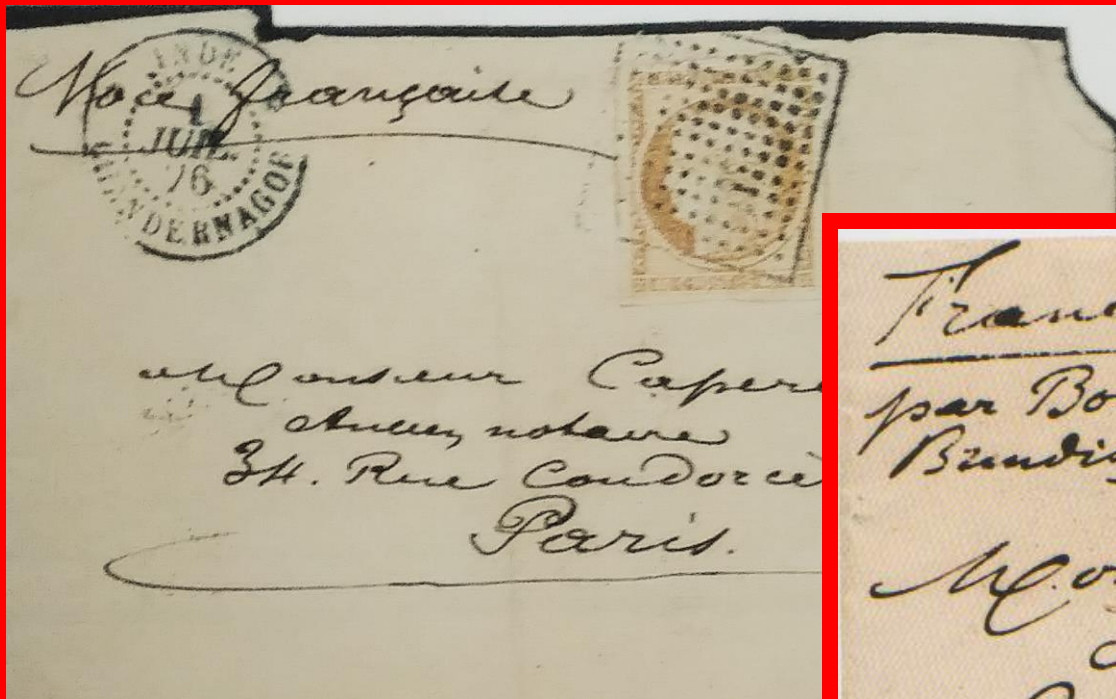 Voie française
INDE
1
JUIL.
76
CHANDERNAGOR
Monsieur Capere
Ancien notaire
34. Rue Condorcè
Paris.
Franc
par Bo
Brindis
Mo